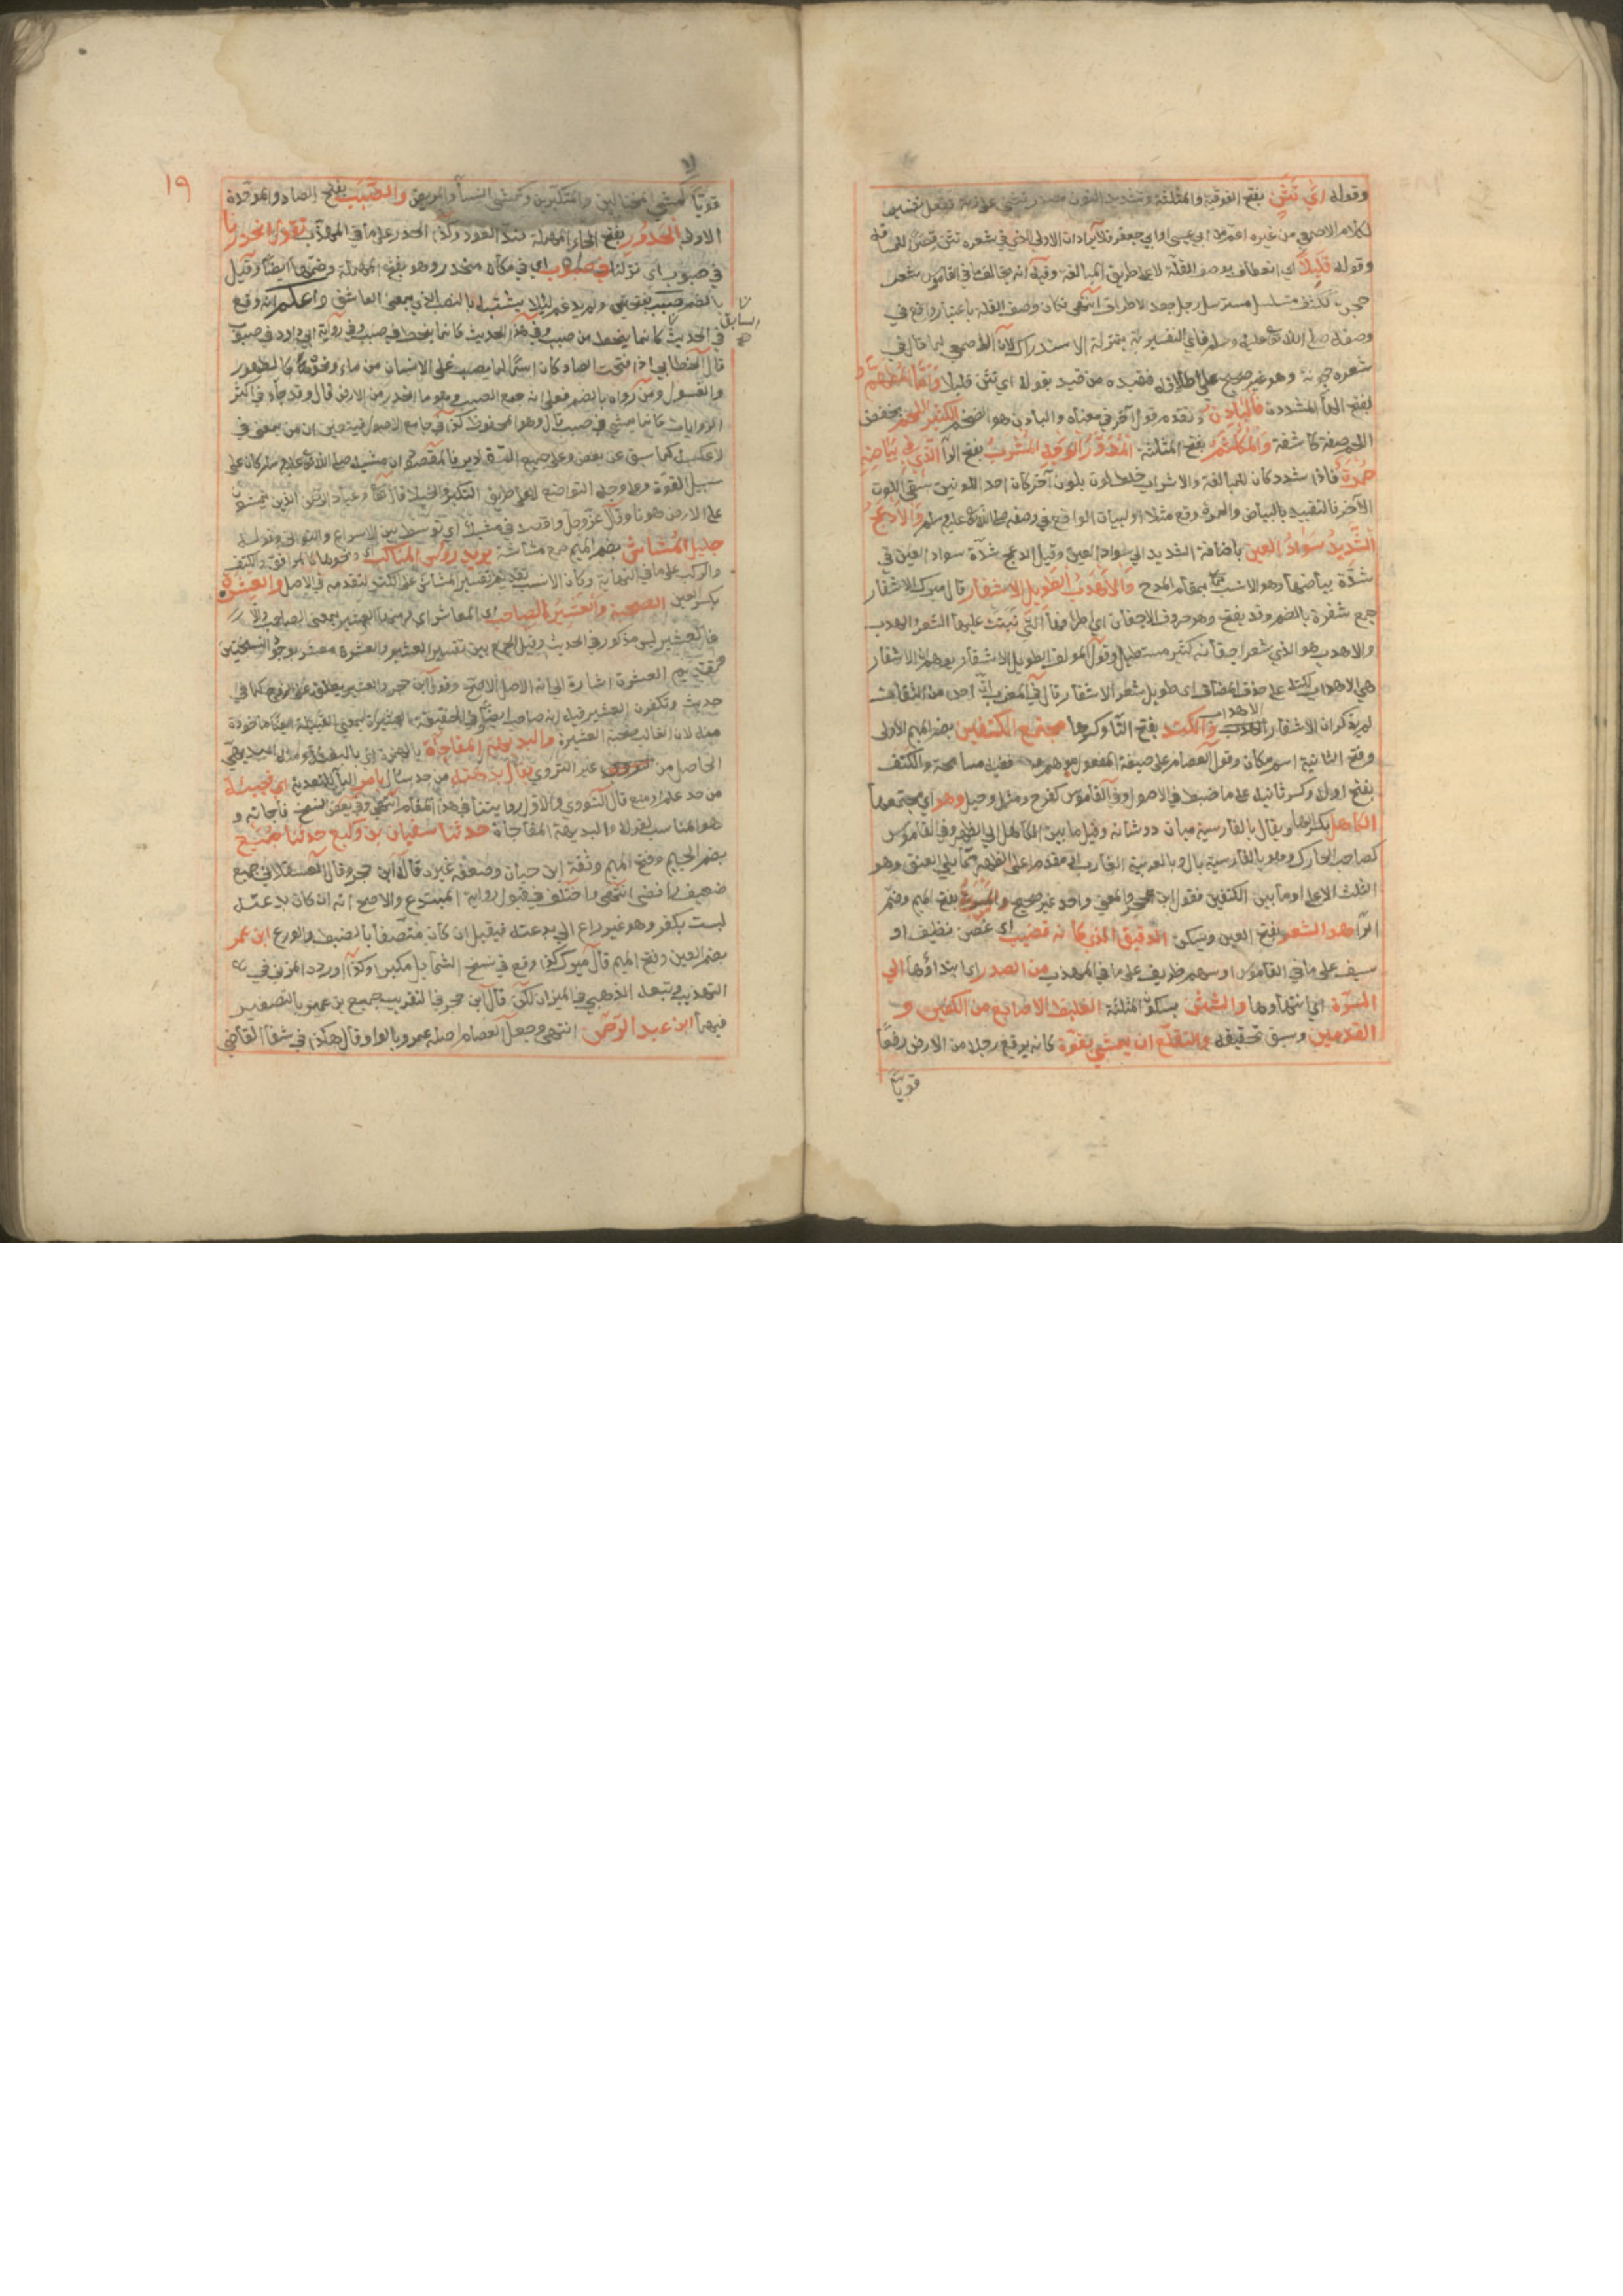 وقوله اي تثن بفتح الفوقية والمثلثة وتشديد النون
لكلام الاصمعي من غيره اعم من ابي عيسى او ابي جعفر فلا يراد ان الاولى الذي في شعره تثن
وقوله قليلا اي انعطاف بوصف القلة لا على طريق المبالغة
متسلسل مسترسل رجل جعد الاطراف انتهى فكان وصف القلة باعتبار واقع في
وصفه صلى الله عليه وسلم فاي التفسيرية بمنزلة الاستدراك لان الاصمعي لما قال في
شعره حجونة وهو غير صحيح على اطلاقه فقيده من قيد بقوله اي تثن قليلا واما المطهم
بفتح الهاء المشددة فالبادن تقدم قول آخر في معناه والبادن هو الضخم الكثير اللحم بخفض
اللحم صفة كاشفة والمكلثم بفتح المثلثة المدور الوجه المشرب بفتح الراء الذي في بياضه
حمرة فاذا شدد كان للمبالغة والاشراب خلط لون بلون آخر كأن احد اللونين سقي اللون
الآخر فالتقييد بالبياض والحمرة وقع مثلا او لبيان الواقع في وصفه صلى الله عليه وسلم والادعج
الشديد سواد العين باضافة الشديد الى سواد العين وقيل الدعج شدة سواد العين في
شدة بياضها وهو الانسب بمقام المدح والاهدب الطويل الاشفار قال ميرك الاشفار
جمع شفرة بالضم وقد يفتح وهو حروف الاجفان اي اطرافها التي تنبت عليها الشعر الهدب
والاهدب هو الذي شعر اجفانه كثير مستطيل وقول المؤلف الطويل الاشفار يوهم ان الاشفار
هي الاهداب لكنه على حذف المضاف اي طويل شعر الاشفار قال في المغرب ان احدا من الثقات
لم يذكر ان الاشفار الاهداب والكتد بفتح التاء وكسرها مجتمع الكتفين بضم الميم الاولى
وفتح الثانية اسم مكان وقول العصام على صيغة المفعول
بفتح اوله وكسر ثانيه على ما ضبط في الاصول وفي القاموس كفرح ومثل وحبل وهو اي مجتمعهما
الكاهل بكسر الهاء ويقال بالفارسية ميان دو شانه وقيل ما بين الكاهل الى الظهر وفي القاموس
كصاحب الحارك وهو بالفارسية يال وبالعربية الغارب الى مقدم اعلى الظهر مما يلي العنق وهو
الثلث الاعلى او ما بين الكتفين فقول ابن حجر والمعنى واحد غير صحيح والمسربة بفتح الميم وضم
الراء هو الشعر بفتح العين ويسكن الدقيق الذي كانه قضيب اي غصن نظيف او
سيف على ما في القاموس او سهم ظريف على ما في المهذب من الصدر اي ابتداؤها الى
السرة اي انتهاؤها والشثن بسكون المثلثة الغليظ الاصابع من الكفين و
القدمين وسبق تحقيقه والتقلع ان يمشي بقوة كانه يرفع رجله من الارض رفعا
قويا
١٩
قويا كمشي المختالين والمتكبرين وكمشي النساء والمريض والصبب بفتح الصاد والموحدة
الاولى الحدور بفتح الحاء المهملة ضد الصعود وكذا الحدر على ما في المهذب تقول انحدرنا
في صبوب اي نزلنا في صبب اي في مكان منحدر وهو بفتح المهملة وضمها ايضا وقيل
بالضم جمع صبب واعلم انه وقع
في الحديث السابق كانما ينحط من صبب وفي هذا الحديث كانما ينحط في صبب وفي رواية ابي داود في صبوب
قال الخطابي اذا فتحت الصاد كان اسما لما يصب على الانسان من ماء ونحوه كالطهور
والغسول ومن رواه بالضم فعلى انه جمع الصبب وهو ما انحدر من الارض قال وقد جاء في اكثر
الروايات كانما يمشي في صبب قال وهو المحفوظ كذا في جامع الاصول فيتعين ان من بمعنى في
لا عكسه كما سبق عن بعض وعلى جميع التقادير فالمقصود ان مشيه صلى الله عليه وسلم كان على
سبيل القوة وعلى وجه التواضع لا على طريق التكبر والخيلاء قال تعالى وعباد الرحمن الذين يمشون
على الارض هونا وقال عز وجل واقصد في مشيك اي توسط بين الاسراع والتواني وقوله
جليل المشاش بضم الميم جمع مشاشة يريد رؤس المناكب ونحوها كالمرافق والكتف
والركب على ما في النهاية وكان الانسب تقديم تفسير المشاش على الكتد لتقدمه في الاصل والعشرة
بكسر العين الصحبة والعشير الصاحب اي المعاشر
فالعشير ليس مذكورا في الحديث وقيل الجمع بين تفسير العشير والعشرة
العشرة اشارة الى انه الاصل الاصح وقول ابن حجر والعشير يطلق على الزوج كما في
حديث وتكفرن العشير
منه لان الغالب صحبة العشيرة والبديهة المفاجأة
الحاصل من غير التروي يقال بدهته من حد سأل بامر الباء للتعدية اي فجئته
من حد علم او منع قال النووي والاول رواية في هذا المقام انتهى وفي بعض النسخ فاجأته و
هو المناسب لقوله البديهة المفاجأة حدثنا سفيان بن وكيع حدثنا جميع
بضم الجيم وفتح الميم وثقه ابن حبان وضعفه غيره قاله ابن حجر وقال العسقلاني جميع
ضعيف رافضي انتهى واختلف في قبول رواية المبتدع والاصح انه ان كان بدعته
ليست بكفر وهو غير داع الى بدعته فيقبل ان كان متصفا بالضبط والورع ابن عمر
بضم العين وفتح الميم قال ميرك كذا وقع في نسخ الشمايل مكبرا وكذا اورده المزي في
التهذيب وتبعه الذهبي في الميزان لكن قال ابن حجر في التقريب جميع بن عمير بالتصغير
فيهما ابن عبد الرحمن انتهى وجعل العصام اصله عمرو بالواو وقال هكذا في شفاء القاضي